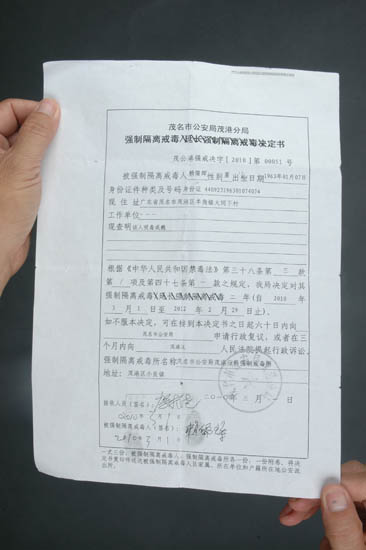 茂名市公安局茂港分局
强制隔离戒毒/延长强制隔离戒毒决定书
茂公港强戒决字[2010]第00051号
被强制隔离戒毒人 性别 男 出生日期 1963年01月07日
身份证件种类及号码 身份证 440923196301074074
现住址 广东省茂名市茂港区羊角镇大同下村
工作单位
现查明 该人吸毒成瘾
根据《中华人民共和国禁毒法》第三十八条第 款
第 / 项及第四十七条第一款之规定,我局决定对其
强制隔离戒毒 二年(自 2010
年 3月1日至 2012年2月29日止)。
如不服本决定,可在接到本决定书之日起六十日内向
茂名市公安局 申请行政复议,或者在三
个月内向 茂港区 人民法院提起行政诉讼。
强制隔离戒毒所名称 茂名市公安局茂港分局强制戒毒所
地址:茂港区小良镇
二〇一〇年三月一日
接收人员(签名):
2010年3月1日
被强制隔离戒毒人(签名):
2010年3月1日
一式三份,被强制隔离戒毒人、强制隔离戒毒所各一份,一份附卷。将决
定书复印件送达被强制隔离戒毒人员家属、所在单位和户籍所在地公安派
出所。